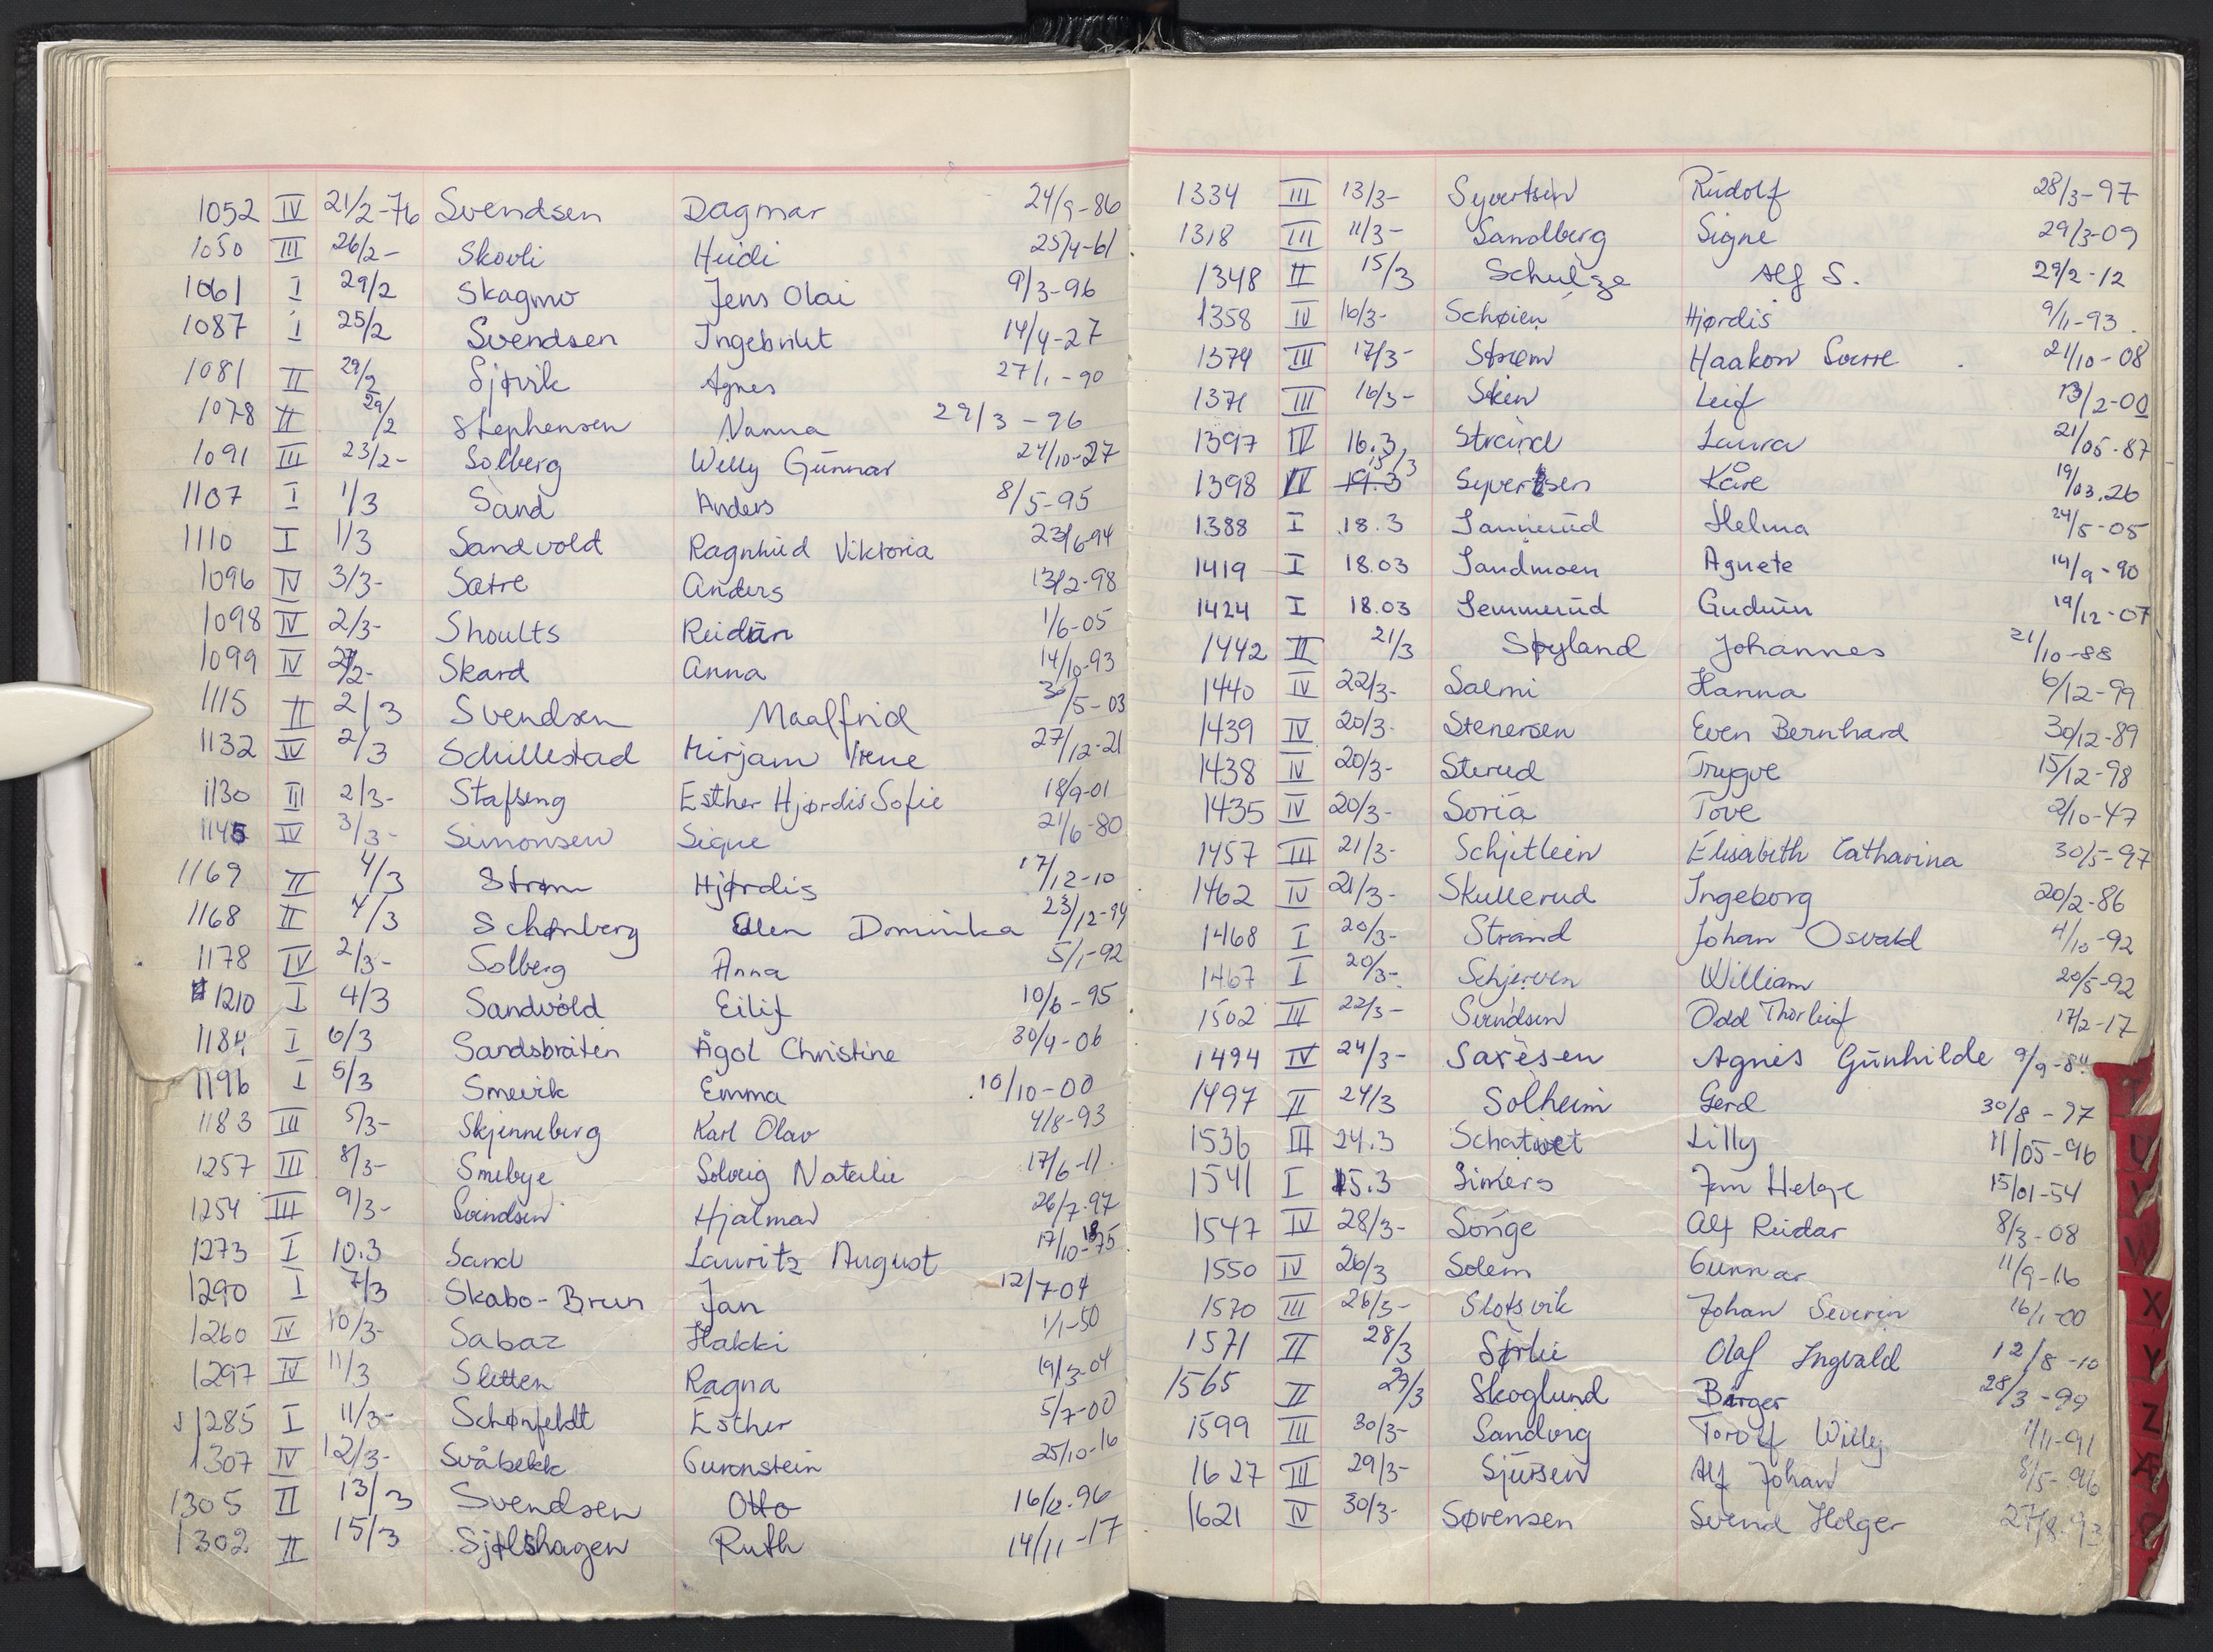 1052 IV 21/2-76 Svendsen Dagmar 24/9-86
1050 III 26/2- Skovli Heidi 25/4-61
1061 I 29/2 Skagmo Jens Olai 9/3-96
1087 I 25/2 Svendsen Ingebrikt 14/4-27
1081 II 29/2 Sjøvik Agnes 27/1-90
1078 II 29/2 Stephensen Nanna 29/3-96
1091 III 23/2- Solberg Willy Gunnar 24/10-27
1107 I 1/3 Sand Anders 8/5-95
1110 I 1/3 Sandvold Ragnhild Viktoria 23/6-94
1096 IV 3/3- Sætre Anders 13/2-98
1098 IV 2/3- Shoults Reidun 1/6-05
1099 IV 27/2- Skard Anna 14/10-93
1115 II 2/3 Svendsen Maalfrid 30/5-03
1132 IV 2/3 Schillestad Mirjam Irene 27/12-21
1130 III 2/3- Stafseng Esther Hjørdis Sofie 18/9-01
1145 IV 3/3- Simonsen Signe 21/6-80
1169 II 4/3 Strøm Hjørdis 17/12-10
1168 II 4/3 Schønberg Ellen Dominika 23/12-94
1178 IV 2/3- Solberg Anna 5/1-92
1210 I 4/3 Sandvold Eilif 10/6-95
1184 I 6/3 Sandsbråten Ågot Christine 30/4-06
1196 I 5/3 Smevik Emma 10/10-00
1183 III 5/3- Skjenneberg Karl Olav 4/8-93
1257 III 8/3- Smebye Solveig Natalie 17/6-11
1254 III 9/3- Svendsen Hjalmar 26/7-97
1273 I 10.3 Sand Lauritz August 17/10-1875
1290 I 7/3 Skabo-Brun Jan 12/7-04
1260 IV 10/3- Sabaz Hakki 1/1-50
1297 IV 11/3 Sletten Ragna 19/3-04
1285 I 11/3- Schønfeldt Esther 5/7-00
1307 IV 12/3- Svåbekk Gunnstein 25/10-16
1305 II 13/3 Svendsen Otto 16/12-96
1302 II 15/3 Sjølshagen Ruth 14/11-17
1334 III 13/3- Syvertsen Rudolf 28/3-97
1318 III 11/3- Sandberg Signe 29/3-09
1348 II 15/3 Schulze Alf S. 29/2-12
1358 IV 16/3- Schøien Hjørdis 9/11-93
1374 III 17/3- Strøm Haakon Sverre 21/10-08
1371 III 16/3- Skien Leif 13/2-00
1397 IV 16.3 Strand Laura 21/05-87
1398 IV 19.3 15/3 Syvertsen Kåre 19/03.26
1388 I 18.3 Sannerud Helma 24/5-05
1419 I 18.03 Sandmoen Agnete 14/9-90
1424 I 18.03 Semmerud Gudrun 19/12-07
1442 II 21/3 Søyland Johannes 21/10-88
1440 IV 22/3- Salmi Hanna 6/12-99
1439 IV 20/3- Stenersen Even Bernhard 30/12-89
1438 IV 20/3- Sterud Trygve 15/12-98
1435 IV 20/3- Soria Tove 2/10-47
1457 III 21/3- Schjetlein Elisabeth Catharina 30/5-97
1462 IV 21/3- Skullerud Ingeborg 20/2-86
1468 I 20/3- Strand Johan Osvald 4/10-92
1467 I 20/3- Schjerven William 20/5-92
1502 III 22/3- Svendsen Odd Thorleif 17/2-17
1494 IV 24/3- Saxesen Agnes Gunhilde 9/9-84
1497 II 24/3 Solheim Gerd 30/8-97
1536 III 24.3 Schativet Lilly 11/05-96
1541 I 15.3 Simers Jan Helge 15/01-54
1547 IV 28/3- Songe Alf Reidar 8/3-08
1550 IV 26/3 Solem Gunnar 11/9-16
1570 III 26/3- Slotsvik Johan Severin 16/1-00
1571 II 28/3 Sørlie Olaf Ingvald 12/8-10
1565 II 29/3 Skoglund Birger 28/3-99
1599 III 30/3- Sandvig Torolf Willy 1/11-91
1627 III 29/3- Sjursen Alf Johan 8/5-96
1621 IV 30/3- Sørensen Svend Holger 27/8-93
U
V
W
X
Y
Z
Æ